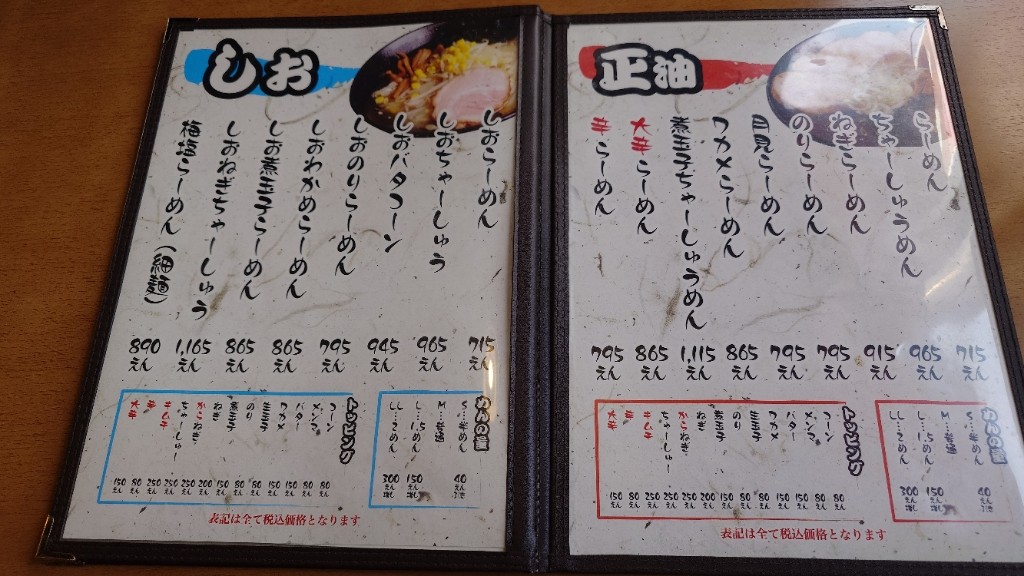 しお
しおらーめん
しおちゃーしゅう
しおバターコーン
しおのりらーめん
しおわかめらーめん
しお煮玉子らーめん
しおねぎちゃーしゅう
梅塩らーめん(細麺)
715えん
965えん
945えん
795えん
865えん
865えん
1,165えん
890えん
S…半めん
M…普通
L…1.5めん
LL…2めん
40えん引き
150えん増し
300えん増し
トッピング
コーン
メンマ
バター
ワカメ
生玉子
のり
煮玉子
ねぎ
からねぎ
ちゃーしゅー
キムチ
辛
大辛
80えん
80えん
150えん
150えん
80えん
80えん
150えん
200えん
250えん
250えん
250えん
80えん
150えん
表記は全て税込価格となります
正油
らーめん
ちゃーしゅうめん
ねぎらーめん
のりらーめん
月見らーめん
ワカメらーめん
煮玉子ちゃーしゅうめん
大辛らーめん
辛らーめん
715えん
965えん
915えん
795えん
795えん
865えん
1,115えん
865えん
795えん
S…半めん
M…普通
L…1.5めん
LL…2めん
40えん引き
150えん増し
300えん増し
トッピング
コーン
メンマ
バター
ワカメ
生玉子
のり
煮玉子
ねぎ
からねぎ
ちゃーしゅー
キムチ
辛
大辛
80えん
80えん
150えん
150えん
80えん
80えん
150えん
200えん
250えん
250えん
250えん
80えん
150えん
表記は全て税込価格となります